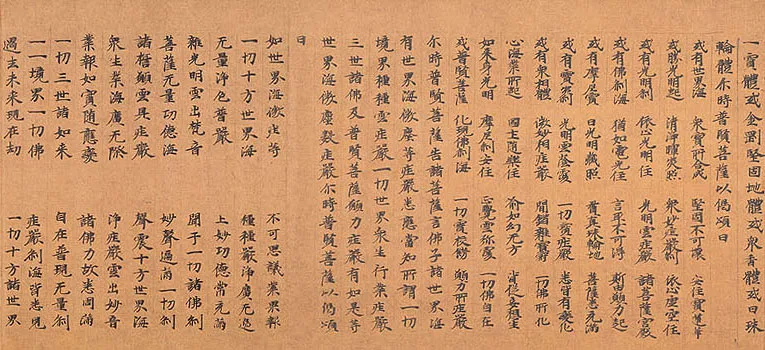 一寶體或金剛堅固地體或眾香體或日珠
輪體尒時普賢菩薩以偈頌曰
或有世界海 眾寶所合成 堅固不可壞 安住寶蓮華
或勝光明起 清淨曜炎照 眾妙莊嚴刹 依心虛空住
或有光明刹 依心光明住 光明雲莊嚴 諸菩薩宮殿
或有佛刹海 猶如電光住 言 不可得 斯由願力起
或有摩尼寶 日光明藏照 珠輪地 菩薩悉充滿
或有寶刹 光明雲蔭覆 一切寶莊嚴 悉皆有變化
或有眾相體 微妙相莊嚴 間錯雜寶飾 一切佛所化
心海業所起 國土隨樂住 喻如幻无方 皆從妄想生
如來身光明 摩尼刹安住 雲弥覆 一切佛自在
或普賢菩薩 化現佛刹海 一切寶校飾 願力所莊嚴
尒時普賢菩薩告諸菩薩言佛子諸世界海
有世界海微塵等莊嚴悉應當知所謂一切
境界種種雲莊嚴一切世界眾生行業莊嚴
三世諸佛及普賢菩薩願力莊嚴有如是等
世界海微塵數莊嚴尒時普賢菩薩以偈頌
曰
如世界海微莊等 不可思議業果報
一切十方世界海 種種嚴淨廣无邊
无量淨色普嚴 上妙功德常充滿
雜光明雲出梵音 聞于一切諸佛刹
菩薩无量功德海 妙聲遍滿一切刹
諸 願雲具莊嚴 聲震十方世界海
眾生業海廣无際 淨莊嚴雲出妙音
業報如實隨應 諸佛力故悉周滿
一切三世諸如来 自在普現无量刹
一一境界一切佛 莊嚴刹海皆悉見
過去未来現在劫 一切十方諸世界